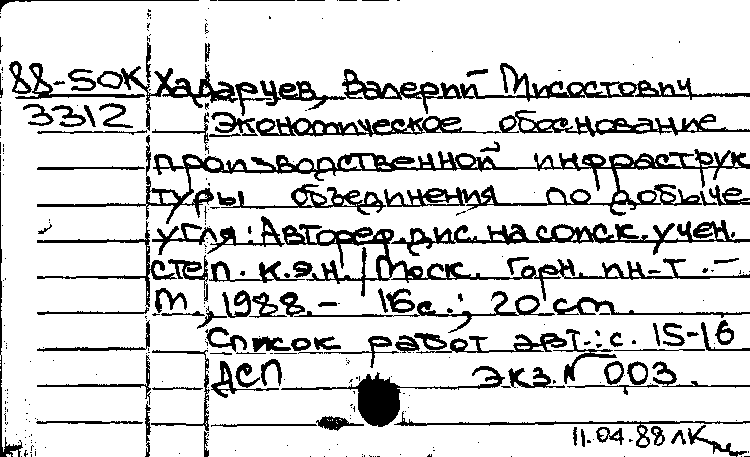 88-50К Хадарцев, Валерий Мисостович
3312 Экономическое обоснование
производственной инфраструк
туры объединения по добыче
угля: Автореф. дис. на соиск. учен.
степ. к.э.н. / Моск. горн. ин-т. –
М., 1988. – 16 с.; 20 cm.
Список работ авт.: с. 15-16
ДСП экз. № 003.
11.04.88 ЛК